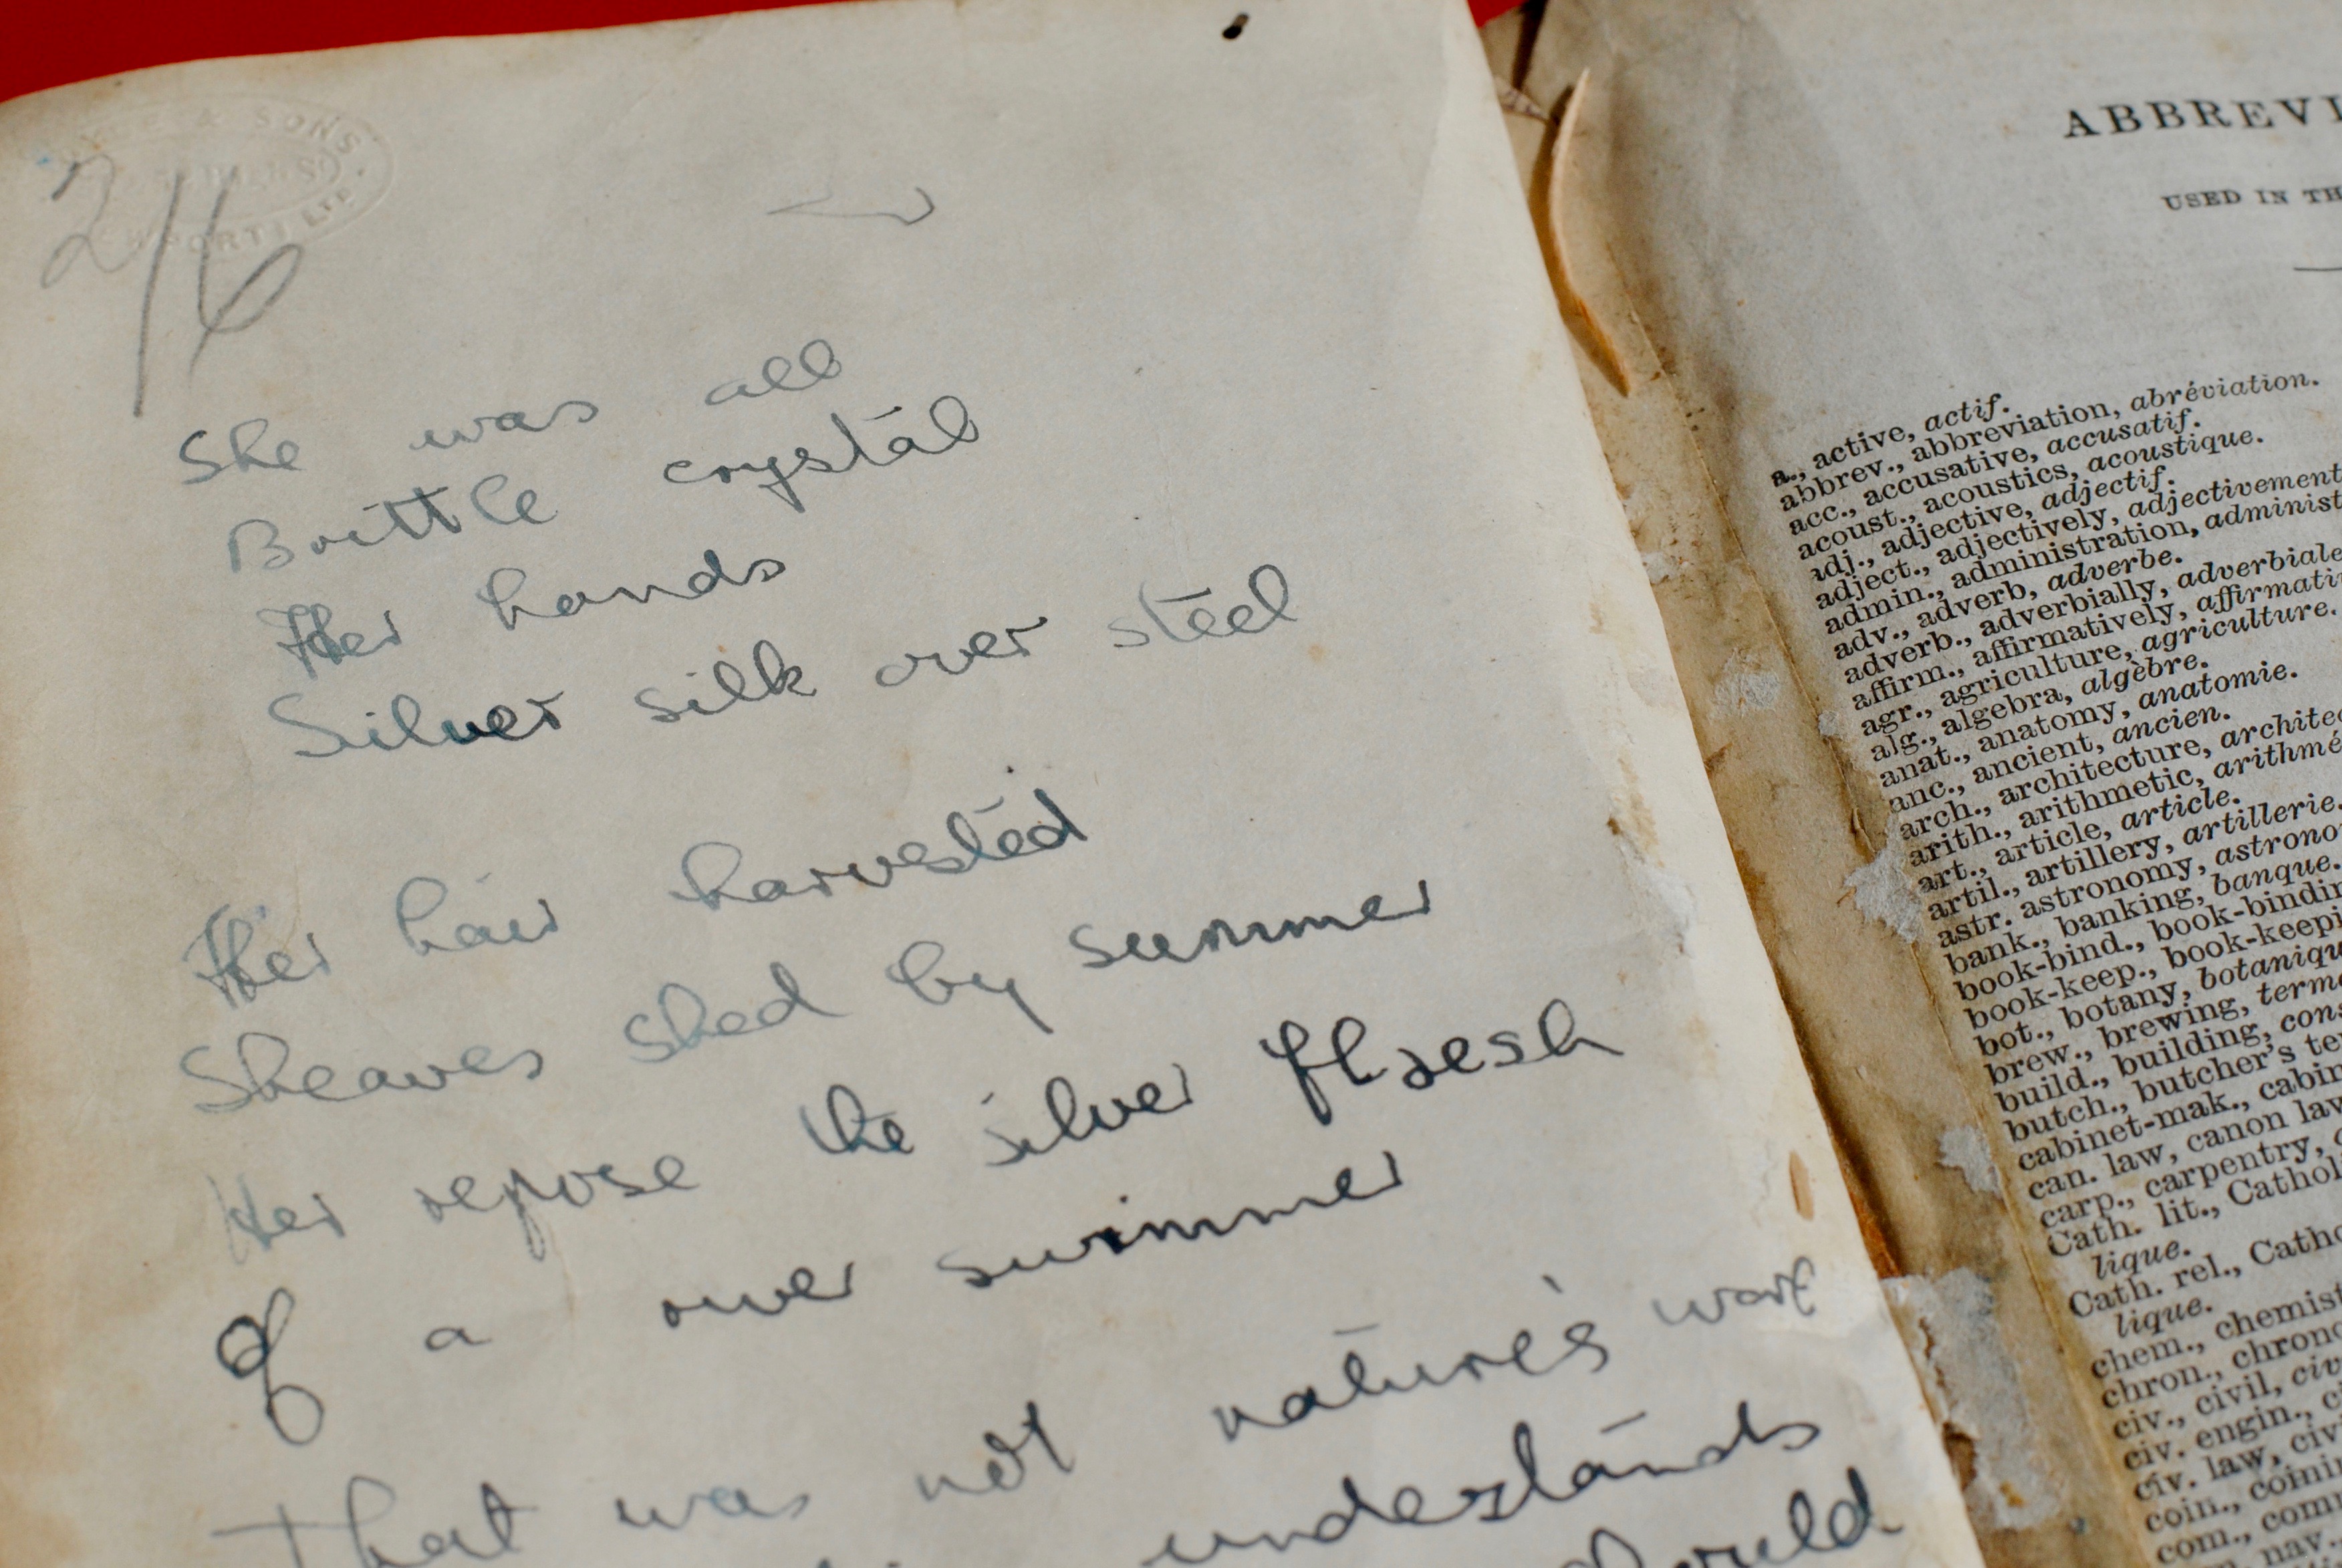 & SONS
2/6
She was all
Brittle crystal
Her hands
Silver silk over steel
Her hair harvested
Sheaves shed by summer
Her repose the silver
Of a swimmer
That was not nature's
understands
should
ABBREVI
USED IN TH
a., active, actif.
abbrev., abbreviation, abréviation.
acc., accusative, accusatif.
acoust., acoustics, acoustique.
adj., adjective, adjectif.
adject., adjectively, adjectivement
admin., administration, administ
adv., adverb, adverbe.
adverb., adverbially, adverbiale
affirm., affirmatively, affirmati
agr., agriculture, agriculture.
alg., algebra, algèbre.
anat., anatomy, anatomie.
anc., ancient, ancien.
arch., architecture, architec
arith., arithmetic, arithmé
art., article, article.
artil., artillery, artillerie.
astr. astronomy, astrono
bank., banking, banque.
book-bind., book-bindin
book-keep., book-keepi
bot., botany, botaniqu
brew., brewing, terme
build., building, cons
butch., butcher's te
cabinet-mak., cabin
can. law, canon law
carp., carpentry,
Cath. lit., Cathol
lique.
Cath. rel., Catho
lique.
chem., chemist
chron., chrono
civ., civil, civ
civ. engin., c
civ. law, civi
coin., coinin
com., comm
nav.